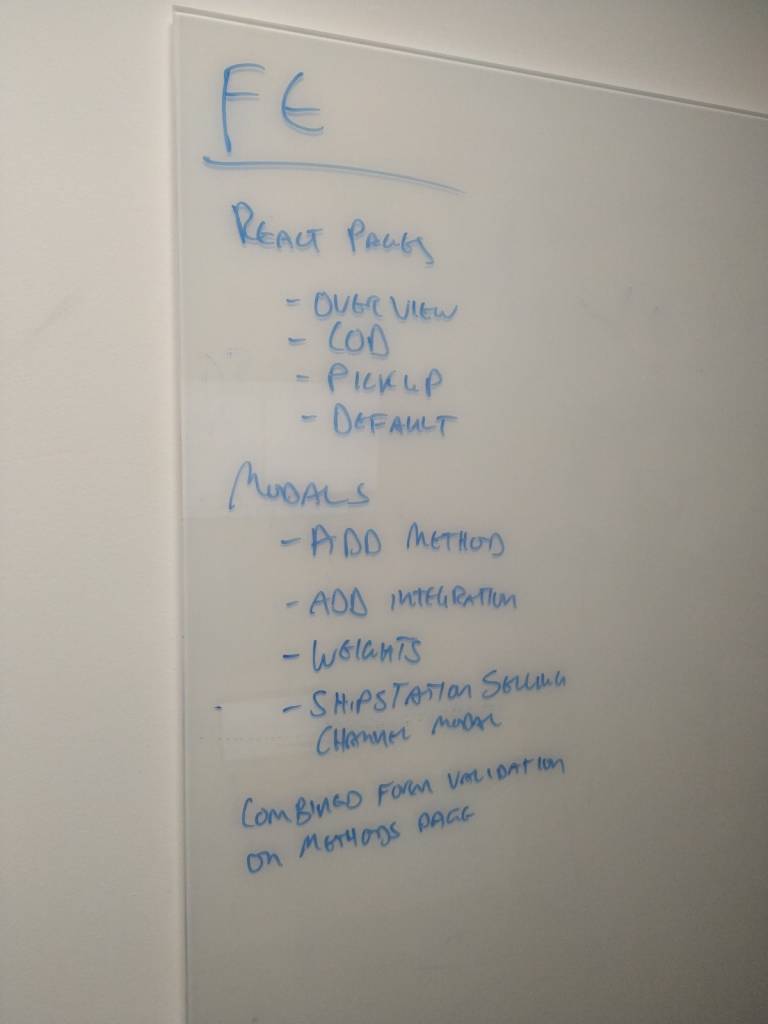 FE
REACT PAGES
- OVERVIEW
- COD
- PICKUP
- DEFAULT
MODALS
- ADD METHOD
- ADD INTEGRATION
- WEIGHTS
- SHIPSTATION SELLING
CHANNEL MODAL
COMBINED FORM VALIDATION
ON METHODS PAGE